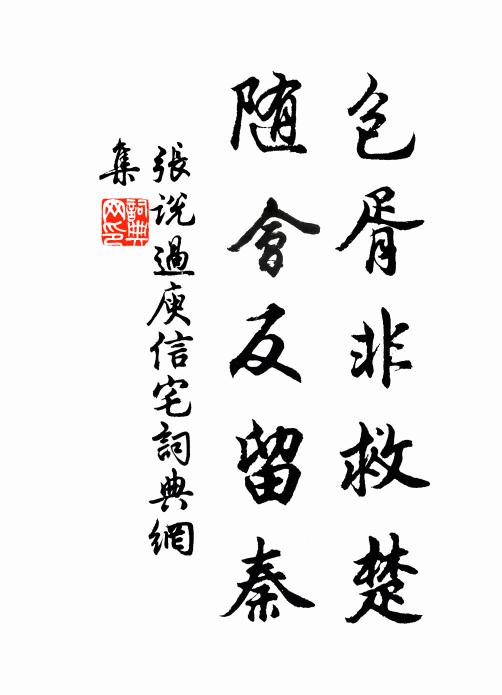 包胥非救楚
随會反留秦
張说過庾信宅詞典網
集
詞典
网印